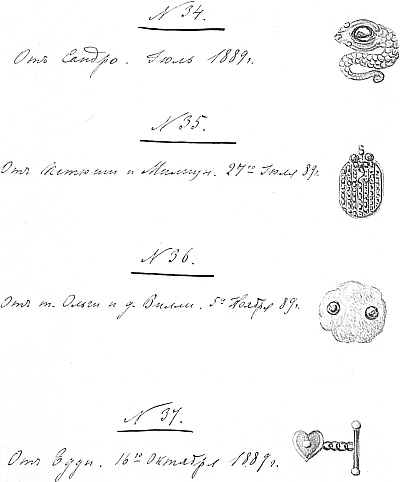 N 34.
Отъ Сандро. Iюль 1889г.
N 35.
Отъ и 27го Iюля 89г.
N 36.
Отъ т. Ольги и д. Вилли. 5го Ноября 89г.
N 37.
Отъ Эдди. 16го Октября 1889г.